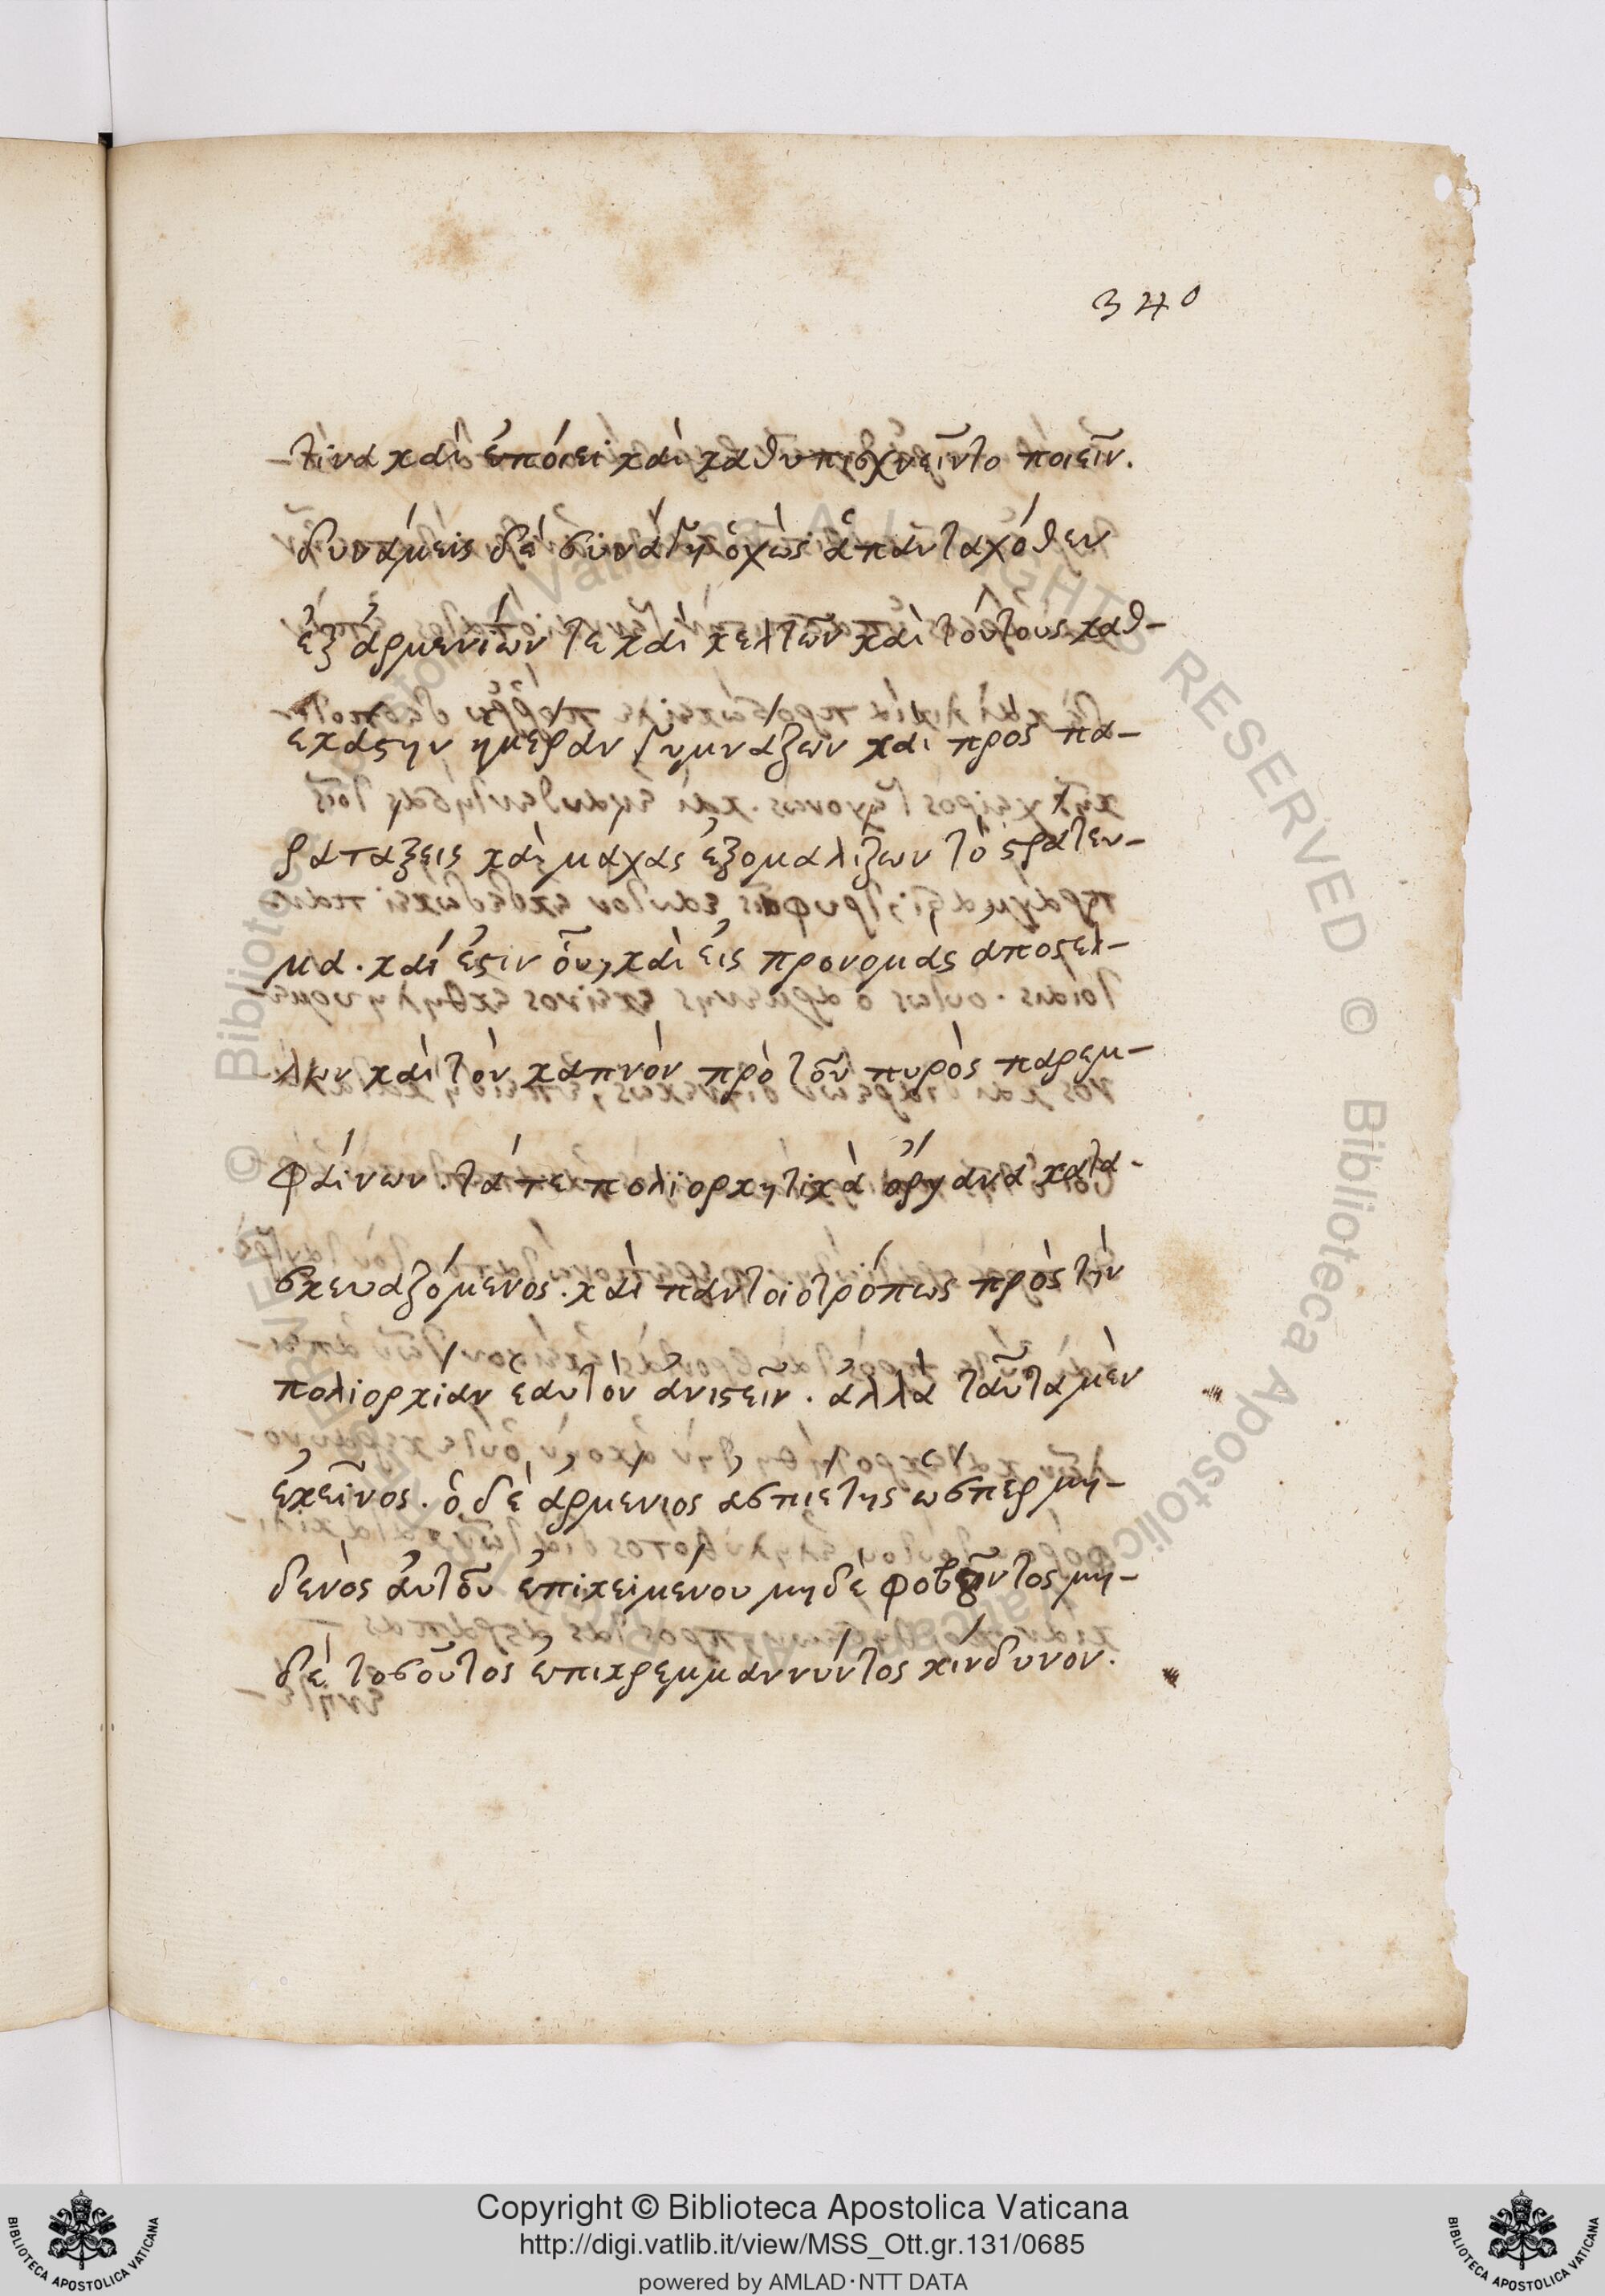 340
τίνα καὶ ἐπόιει καὶ καθυπισχνεῖντο ποιεῖν.
δυνάμεις δὲ συνάδηοχὼς ἁπανταχόθεν
ἐξ ἀρμενίων τε καὶ κελτῶν καὶ τούτους καθ-
εκάστην ημέραν γυμνάζων καὶ πρὸς πα-
ρατάξεις καὶ μάχας ἐξομαλίζων τὸ στράτευ-
μα. καὶ ἔστιν ὅυ, καὶ ἐις προνομὰς ἀποστέλ-
λων καὶ τὸν καπνὸν πρὸ τοῦ πυρὸς παρεμ-
φάινων. τά τε πολιορκητικὰ ὄργανα κατα-
σκευαζόμενος. καὶ παντοιοτρόπως πρὸς τὴν
πολιορκίαν ἑαυτὸν ἀνιστεῖν. ἀλλὰ ταῦτα μὲν
ἐκεῖνος. ὁ δὲ ἀρμένιος ἀσπιέτης ὥσπερ μη-
δενὸς ἀυτοῦ ἐπικειμένου μηδὲ φοβοῦντος μη-
δὲ τοσοῦτος ἐπικρεμμαννύντος κίνδυνον.
Copyright © Biblioteca Apostolica Vaticana
http://digi.vatlib.it/view/MSS_Ott.gr.131/0685
powered by AMLAD·NTT DATA
BIBLIOTECA APOSTOLICA VATICANA
BIBLIOTECA APOSTOLICA VATICANA